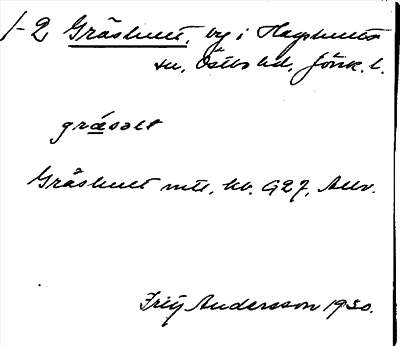 1-2 Gräshult, by i Hagshults
sn, Östbo hd, Jönk. l.
gräsølt
Gräshult mtl, kv. G27, Allv.
Frey Andersson 1930.